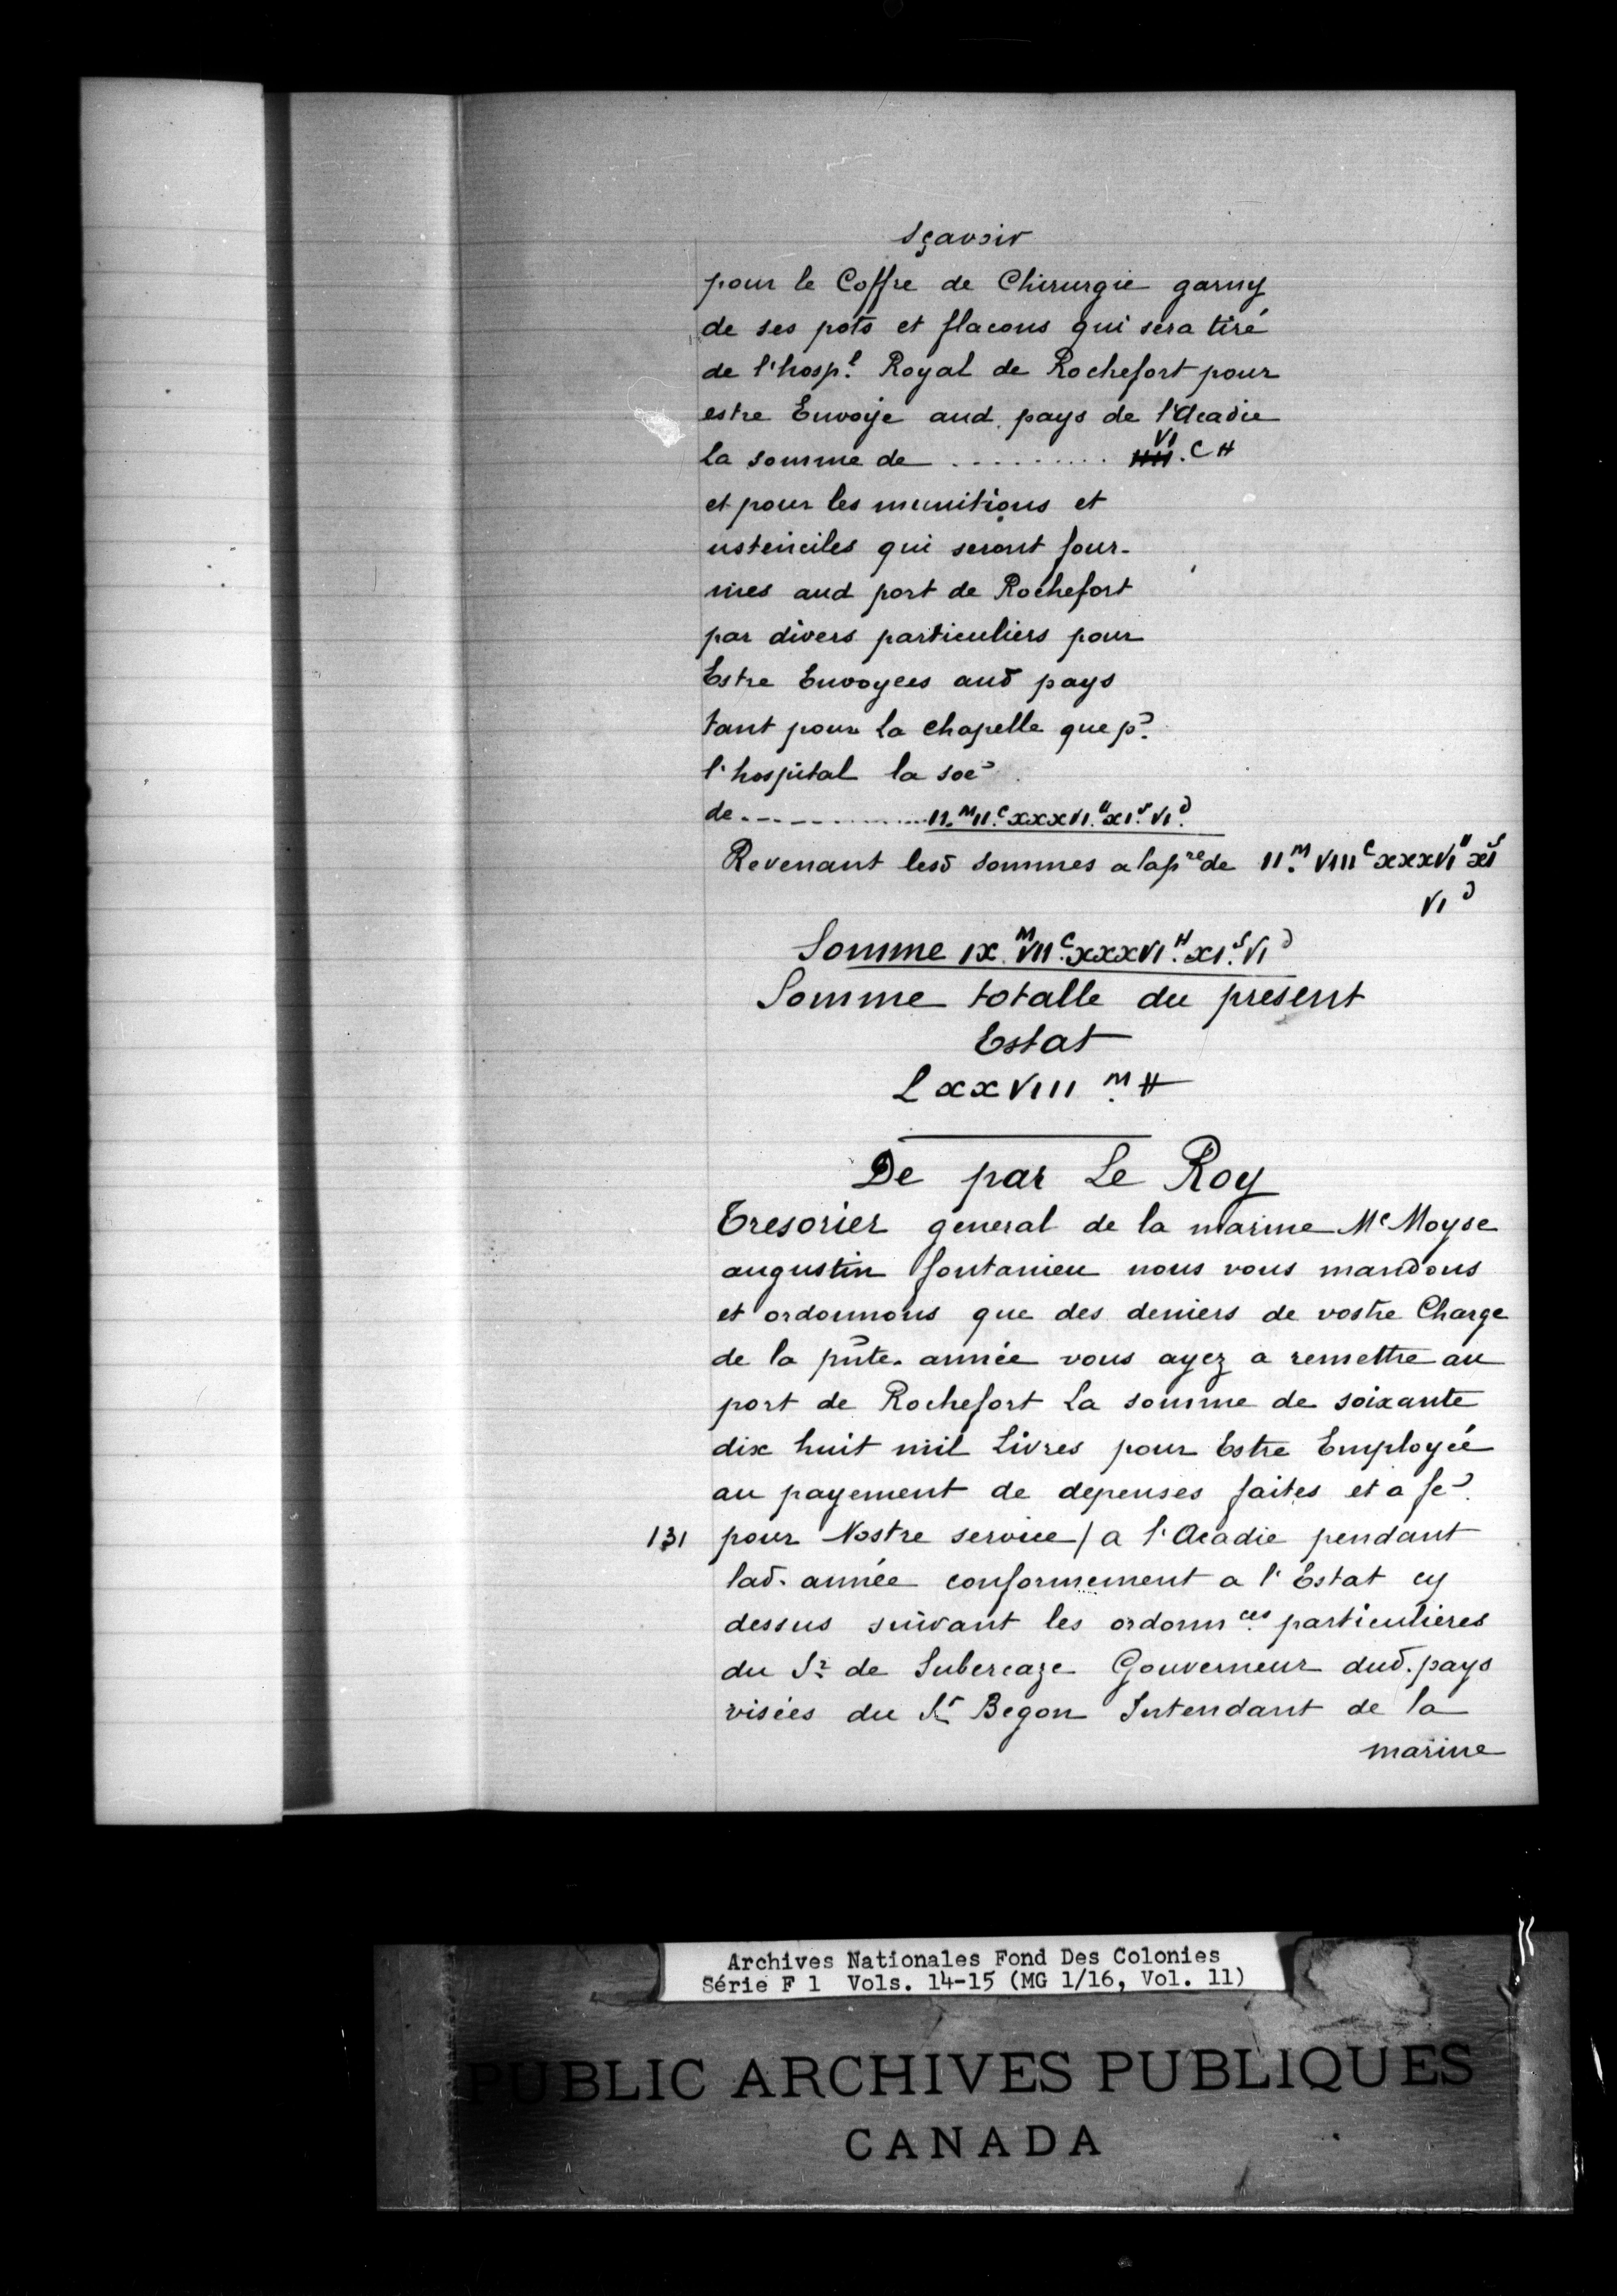 sçavoir
pour le Coffre de Chirurgie garny
de ses pots et flacons qui sera tiré
de l'hosp.l Royal de Rochefort pour
estre Envoÿe aud. pays de l'Acadie
la somme de .......... VI.C ₶
et pour les munitions et
ustenciles qui seront four-
nies aud port de Rochefort
par divers particuliers pour
Estre Envoyees aud pays
tant pour la chapelle que pr.
l'hospital la soe
de ............ II.M II.C XXXVI.₶ XI.S VI.D
Revenant lesd sommes a lap.re de II.M VIII C XXXVI ₶ XI S
VI D
Somme IX.M VII.C XXXVI.₶ XI.S VI D
Somme totalle du present
Estat
LXXVIII M ₶
De par Le Roy
Tresorier general de la marine Me Moyse
augustin fontanieu nous vous mandons
et ordonnons que des deniers de vostre Charge
de la pñte. année vous ayez a remettre au
port de Rochefort La somme de soixante
dix huit mil Livres pour Estre Employée
au payement de depenses faites et a fe.
131 pour Nostre service / a l'Acadie pendant
lad. année conformement a l'Estat cy
dessus suivant les ordonn.ces particulieres
du Sr. de Subercaze Gouverneur dud. pays
visées du Sr Begon Intendant de la
marine
Archives Nationales Fond Des Colonies
Série F 1 Vols. 14-15 (MG 1/16, Vol. 11)
PUBLIC ARCHIVES PUBLIQUES
CANADA